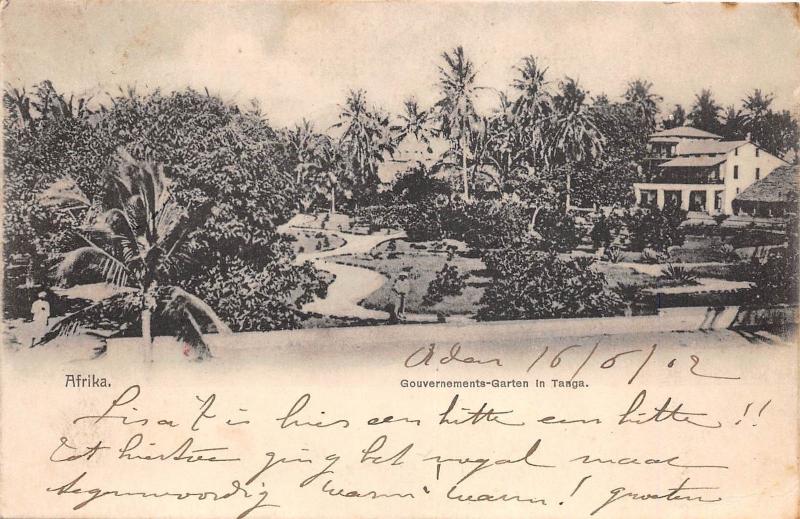 Aden 16/6/02
Afrika.
Gouvernements-Garten in Tanga.
Lisa 't is hier een hitte een hitte!!
Tot hiertoe ging het nogal maar
tegenwoordig "warm" warm! groeten